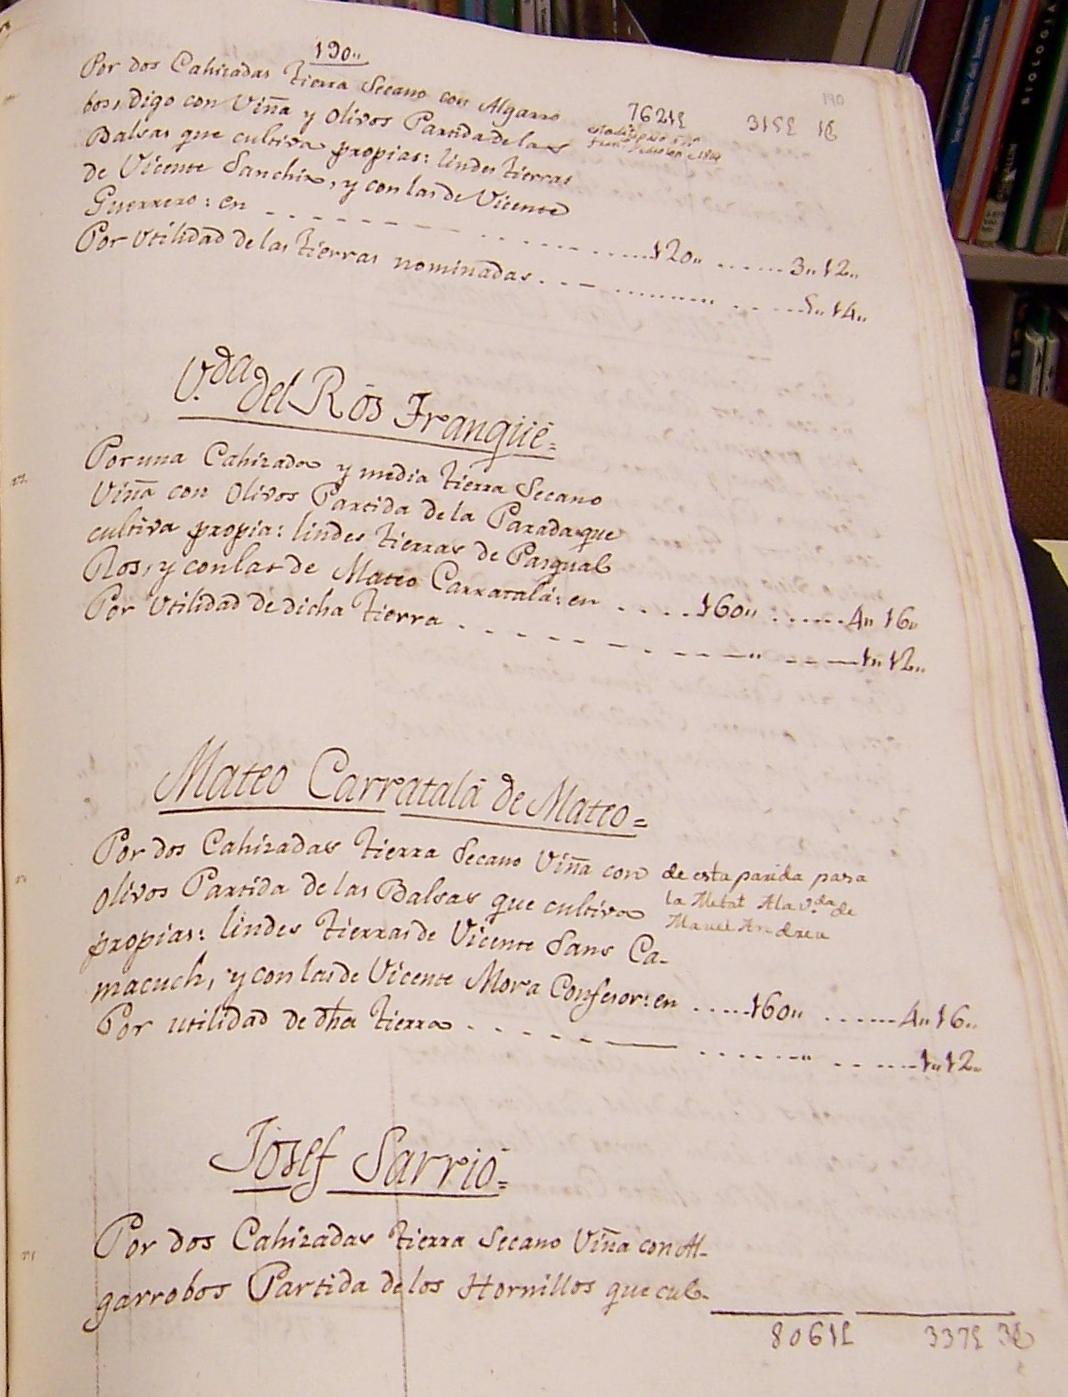 190,,
190
Por dos Cahizadas tierra Secano con Algarro
bos, Digo con Viña y Olivos Partida de las
Balsas que cultiva propias: lindes tierras
de Vicente Sanchis, y con las de Vicente
Guerrero: en 120,, 3,, 12,,
7621£ 315£ 1
Por Utilidad de las tierras nominadas 5,, 14,,
V.da del Ros Franqué=
Por una Cahizada y media tierra Secano
Viña con Olivos Partida de la Parada que
cultiva propia: lindes tierras de Pasqual
Ros, y con las de Mateo Carratalá: en 160,, 4,, 16,,
Por Utilidad de dicha tierra ,, 1,, 12,,
Mateo Carratalá de Mateo=
Por dos Cahizadas tierra Secano Viña con
Olivos Partida de las Balsas que cultiva
propias: lindes tierras de Vicente Sans Ca-
macuch, y con las de Vicente Mora Confesor: en 160,, 4,, 16,,
de esta partida pasa
la Metat A la v.da de
Manuel Andreu
Por utilidad de dha tierra ,, 1,, 12,,
Josef Sarrió=
Por dos Cahizadas tierra Secano Viña con Al-
garrobos Partida de los Hornillos que cul-
8061£ 337£ 3
BIOLOGIA